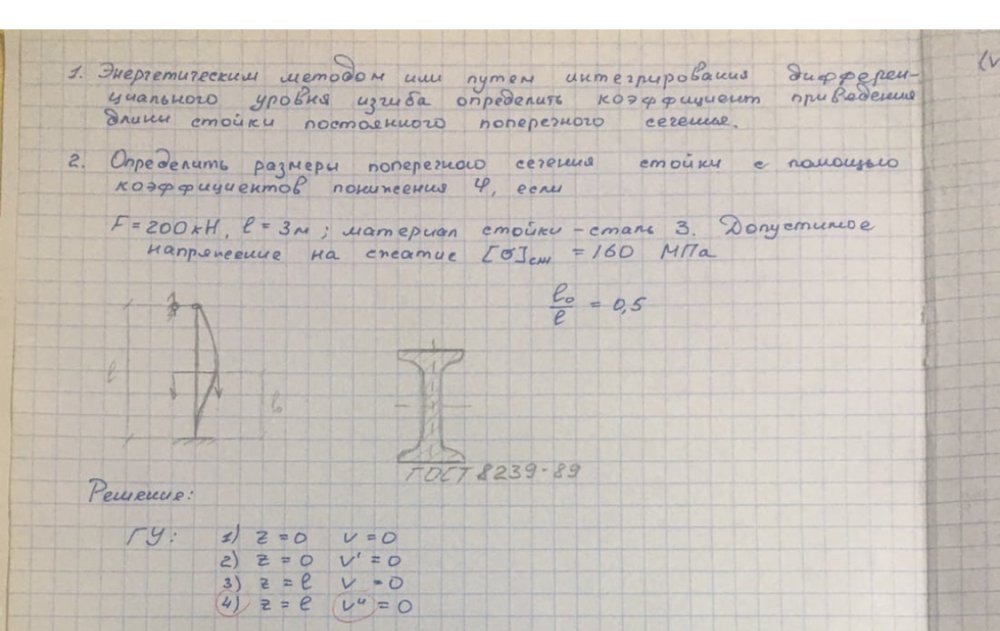 1. Энергетическим методом или путем интегрирования дифферен-
циального уровня изгиба определить коэффициент приведения
длины стойки постоянного поперечного сечения.
2. Определить размеры поперечного сечения стойки с помощью
коэффициентов понижения φ, если
F = 200 кН, l = 3м; материал стойки - сталь 3. Допустимое
напряжение на сжатие [σ]сж = 160 МПа
l₀/l = 0,5
l
ГОСТ 8239-89
Решение:
ГУ: 1) z = 0 v = 0
2) z = 0 v' = 0
3) z = l v = 0
4) z = l v'' = 0